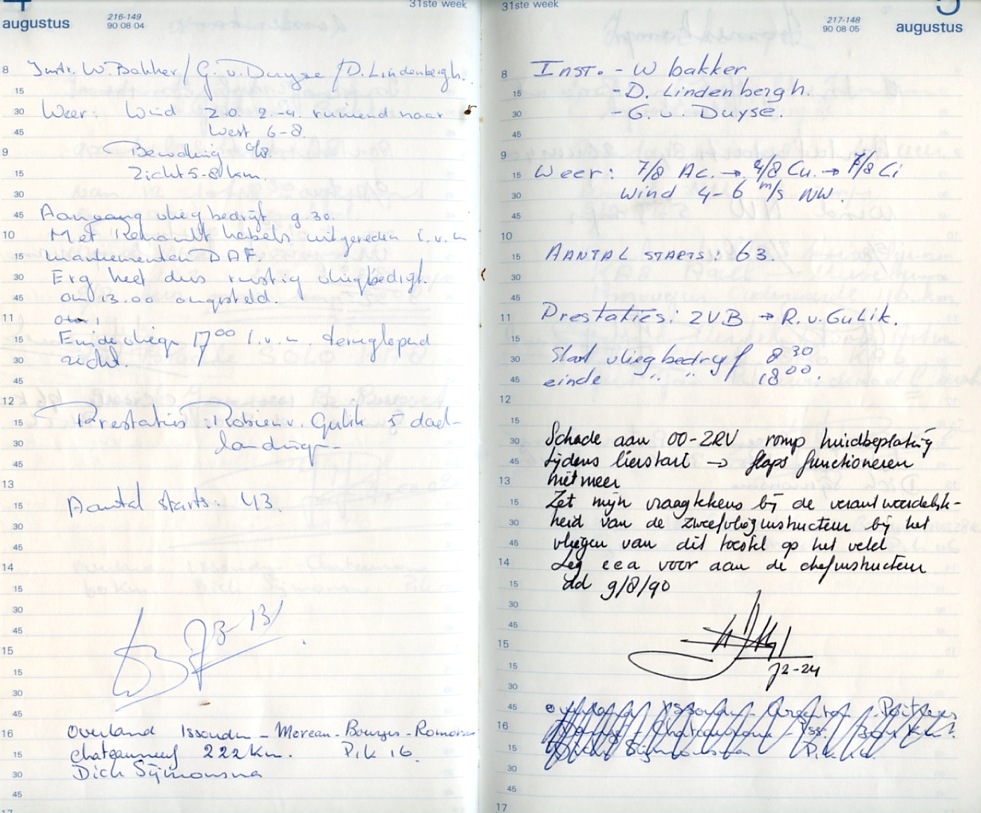 4
augustus
216-149
90 08 04
31ste week
8 Instr. W. Bakker / G. v. Duyse / D. Lindenbergh.
15
30 Weer: Wind Z.O. 2-4 ruimend naar
45 West 6-8.
9 Bewolking 0/8
15 Zicht 5-8 km.
30
45 Aanvang vliegbedrijf 9.30.
10 Met Renault kabels uitgereden i.v.m
15 DAF.
30 Erg heet dus rustig vliegbedrijf.
45 om 13.00 omgesteld.
11 om
15 Einde vliegen 17⁰⁰ i.v.m. teruglopend
30 zicht.
45
12 Prestaties: Robien v. Gulik 5 doel-
15
30 landingen
45
13
15 Aantal starts: 43.
30
45
14
15
30
45
15
15
30
45
16 Overland Issoudun - Moreau - Bourges - Romoran
15 chateauneuf 222 km. Pik 16.
30 Dick Sijmonsma
45
17
31ste week
217-148
90 08 05
5
augustus
8 Inst. - W bakker
15 - D. Lindenbergh.
30 - G. v. Duyse.
45
9 Weer: 7/8 Ac. → 4/8 Cu. → 7/8 Ci
15
30 Wind 4-6 m/s NW.
45
10
15 AANTAL STARTS: 63.
30
45
11 Prestaties: ZVB → R. v. Gulik.
15
30 Start vliegbedrijf 8³⁰
45 einde " " 18⁰⁰.
12
15
30 Schade aan OO-ZRV romp huidbeplating
45 tijdens lierstart → flaps functioneren
13 niet meer
15 Zet mijn vraagtekens bij de verantwoordelijk-
30 heid van de zweefvlieginstructeur bij het
45 vliegen van dit toestel op het veld
14 Leg e e a voor aan de chefinstructeur
15 dd 9/8/90
30
45
15
15 J2-24
30
45
16
15
30
45
17